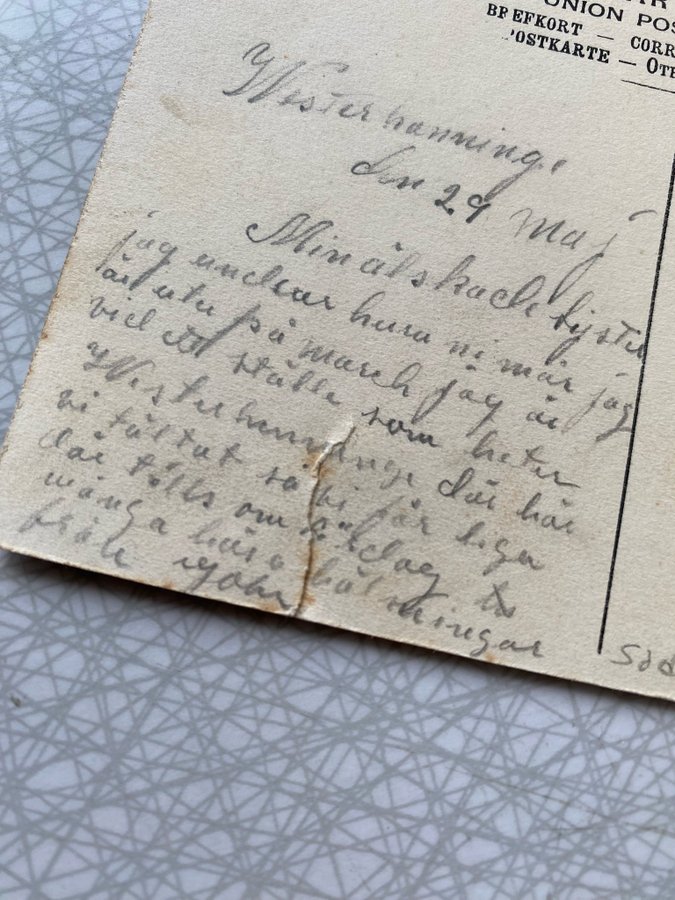 UNION POS
BREFKORT — CORR
POSTKARTE — OTE
Westerhanninge
den 29 maj
Min älskade syster
jag undrar huru ni mår jag
är ute på march jag är
vid ett ställe som heter
Westerhanninge där har
vi tältat så vi får liga
där tills om
många kära hälsningar
från John
Söd